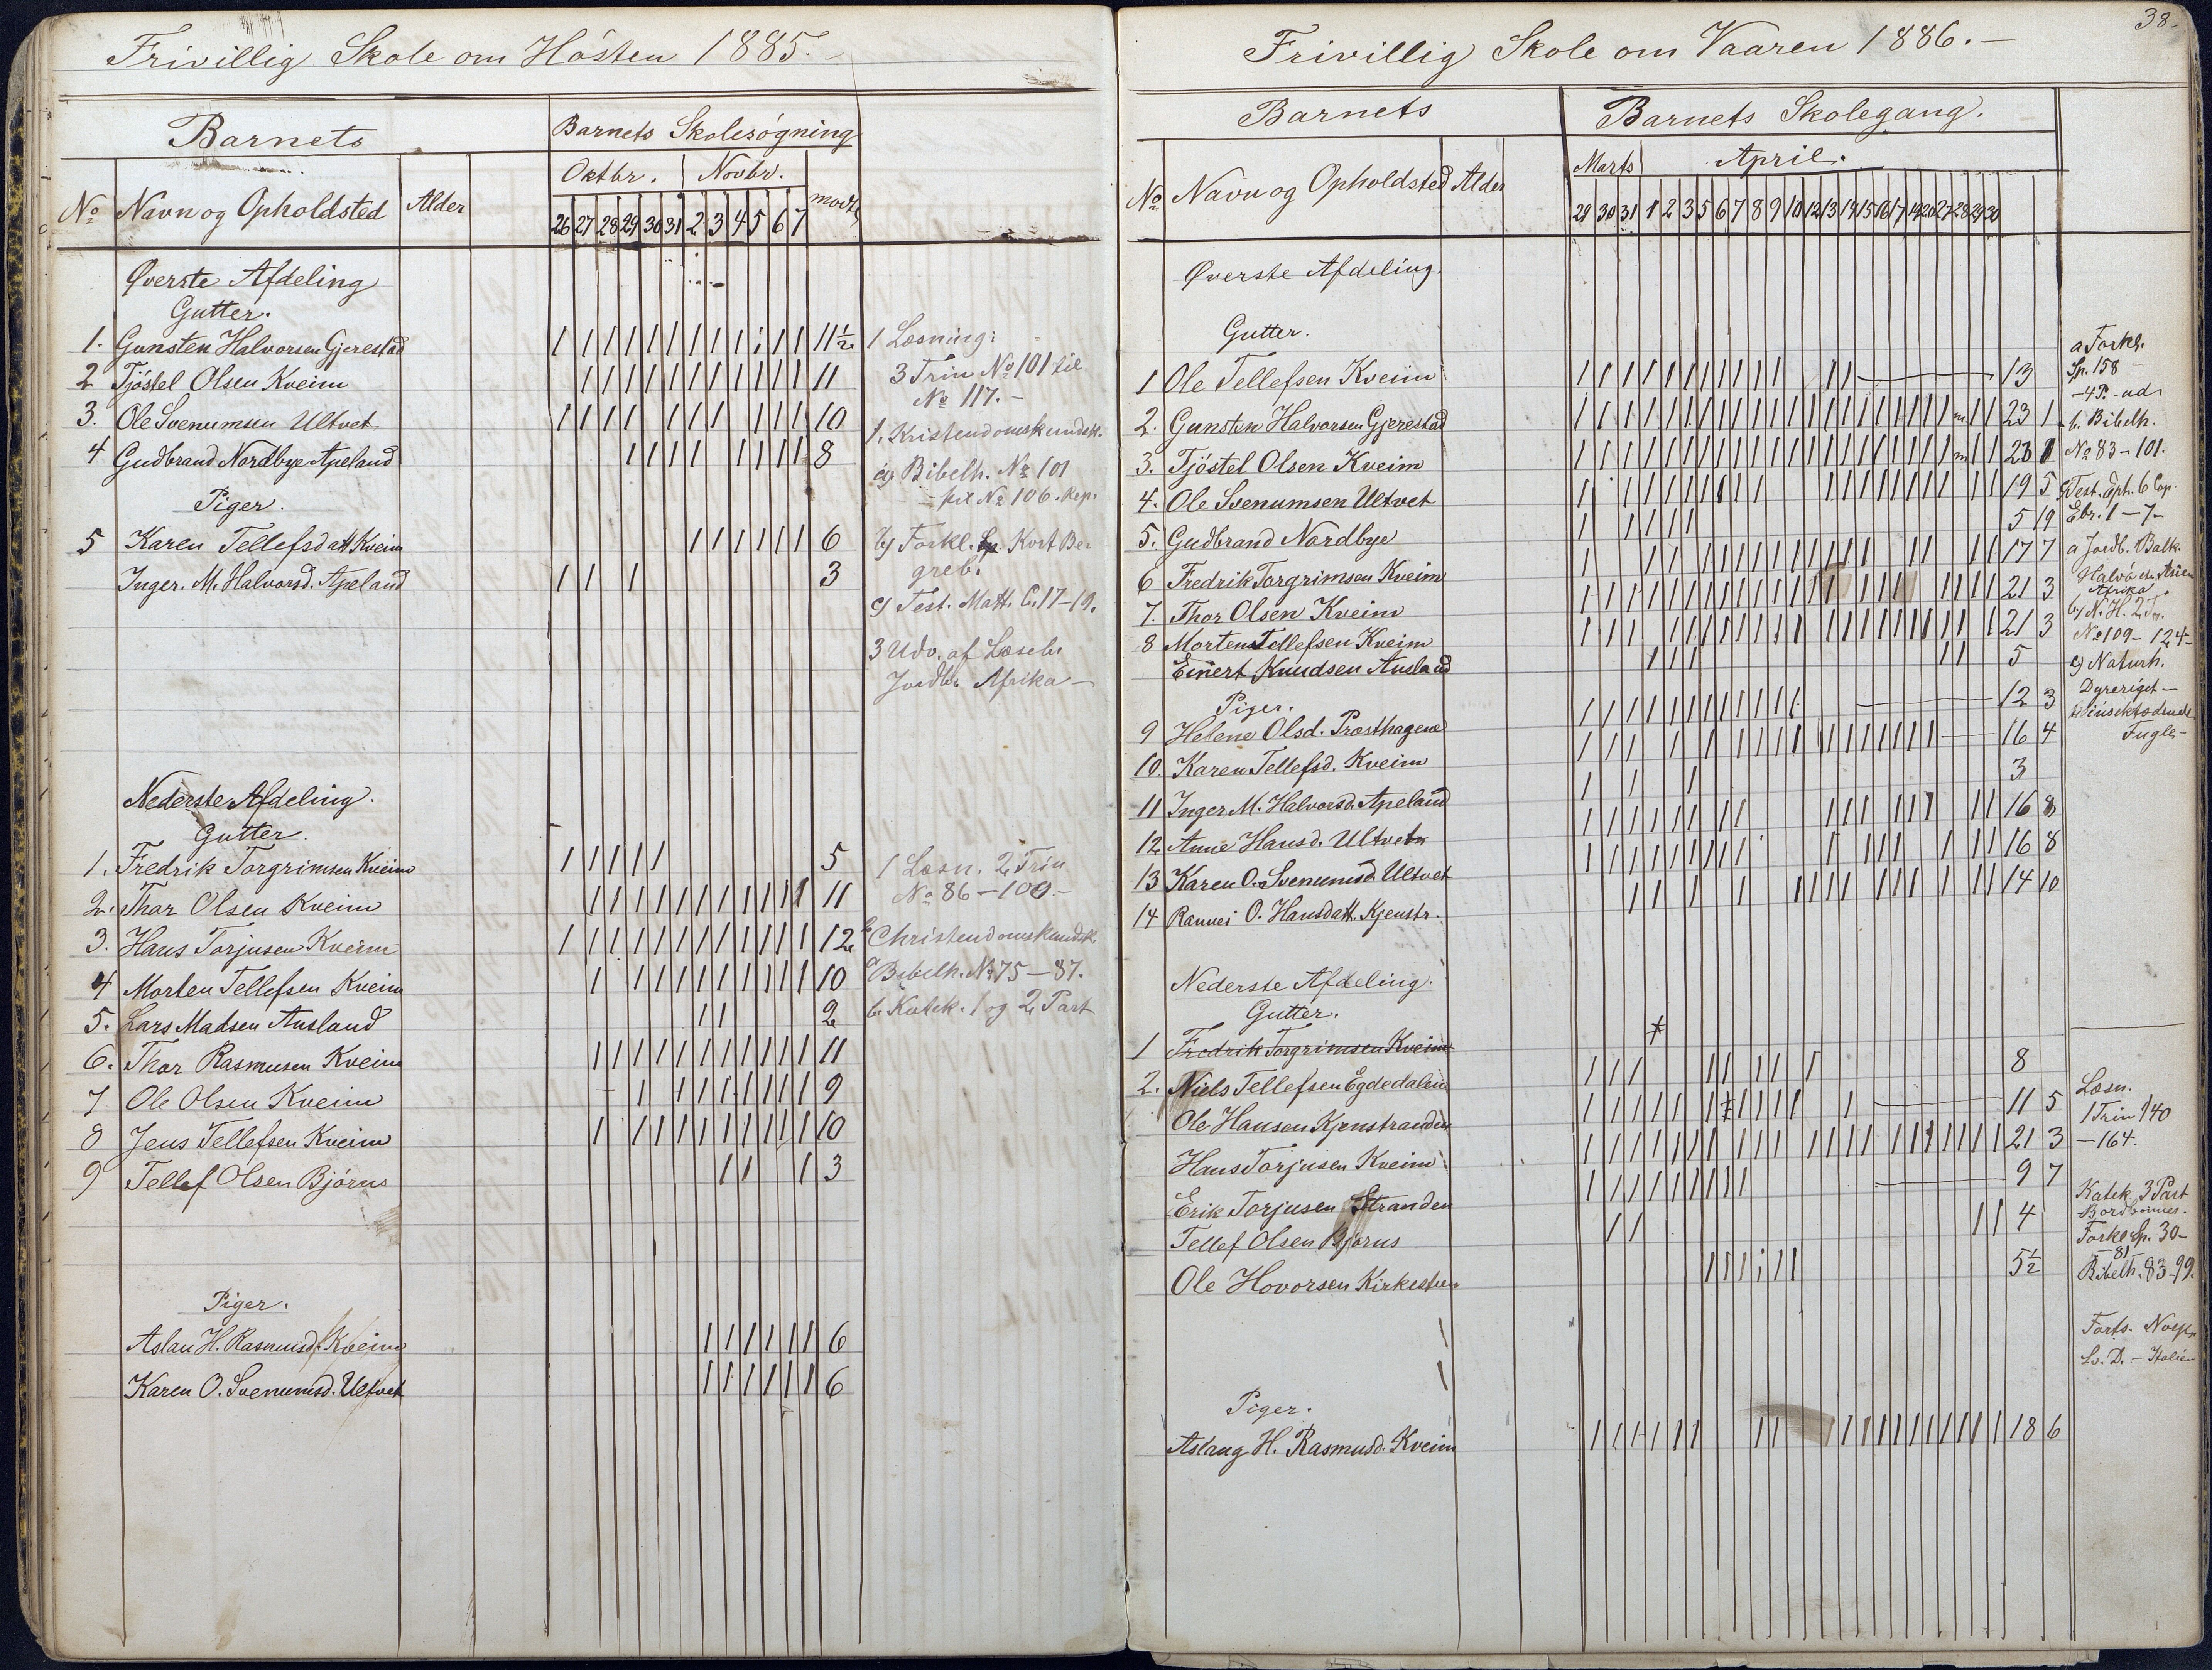 Frivillig Skole om Hösten 1885.
Barnets
Barnets Skolesögning
No Navn og Opholdsted Alder
Oktbr. Novbr. modte
26 27 28 29 30 31 2 3 4 5 6 7
Øverste Afdeling
Gutter.
1. Gunsten Halvorsen Gjerestad 11½
2 Tjöstel Olsen Kveim 11
3. Ole Svenumsen Ultvet 10
4 Gudbrand Nordbye Apeland 8
Piger.
5 Karen Tellefsdatt Kveim 6
Inger. M. Halvorsd. Apeland 3
1 Læsning:
3 Trin No 101 til
No 117. -
1. Kristendomskundsk.
a) Bibelh. No 101
til No 106. Rep.
b) Forkl. Sp. Kort Be-
greb.
c) Test. Matt. C. 17-19.
3 Udv. af Læseb.
Jordb. Afrika -
Nederste Afdeling.
Gutter.
1. Fredrik Torgrimsen Kveim 5
2. Thor Olsen Kveim 11
3. Hans Torjusen Kveim 12
4 Morten Tellefsen Kveim 10
5. Lars Madsen Ausland 2
6. Thor Rasmusen Kveim 11
7 Ole Olsen Kveim 9
8 Jens Tellefsen Kveim 10
9 Tellef Olsen Björus 3
1 Læsn. 2 Trin
No 86 - 100. -
Christendomskundsk.
a Bibelh. No 75 - 87.
b. Katek. 1 og 2 Part
Piger.
Aslau H. Rasmusd. Kveim 6
Karen O. Svenumsd. Ultvet 6
38.
Frivillig Skole om Vaaren 1886. -
Barnets
Barnets Skolegang.
No Navn og Opholdsted Alder
Marts April.
29 30 31 1 2 3 5 6 7 8 9 10 12 13 14 15 16 17 19 20 27 28 29 30
Øverste Afdeling.
Gutter.
1 Ole Tellefsen Kveim 13
2. Gunsten Halvorsen Gjerestad 23 1
3. Tjöstel Olsen Kveim 23 1
4. Ole Svenumsen Ultvet 19 5
5. Gudbrand Nordbye 5 19
6 Fredrik Torgrimsen Kveim 17 7
7. Thor Olsen Kveim 21 3
8 Morten Tellefsen Kveim 21 3
Einert Knudsen Ausland 5
Piger.
9 Helene Olsd. Præsthagene 12 3
10. Karen Tellefsd. Kveim 16 4
11 Inger M. Halvorsd. Apeland 3
12 Anne Hansd. Ultvet 16 8
13 Karen O. Svenumsd. Ultvet 16 8
14 Rannei O. Hansdatt. Kjenstr. 14 10
a Forkl.
Sp. 158 -
- 4 P. ud
b. Bibelh.
No 83 - 101.
c Test. Eph. 6 Cap.
Ebr. 1 - 7 -
a Jordb. Balk.
Halvö Asien
Afrika
b) N. H. 2
No 109 - 124 -
c) Naturh.
Dyreriget -
Fugle -
Nederste Afdeling.
Gutter.
1 Fredrik Torgrimsen Kveim
2. Niels Tellefsen Egdedalen 8
Ole Hansen Kjenstranden 11 5
Hans Torjusen Kveim 21 3
Erik Torjusen Stranden 9 7
Tellef Olsen Björus 4
Ole Hovorsen Kirkestu 5½
Læsn.
1 Trin 140
- 164.
Katek. 3 Part
Forkl. Sp. 30 -
- 81
Bibelh. 83 - 99.
Forts. Norge
Italien
Piger.
Aslaug H. Rasmusd. Kveim 18 6